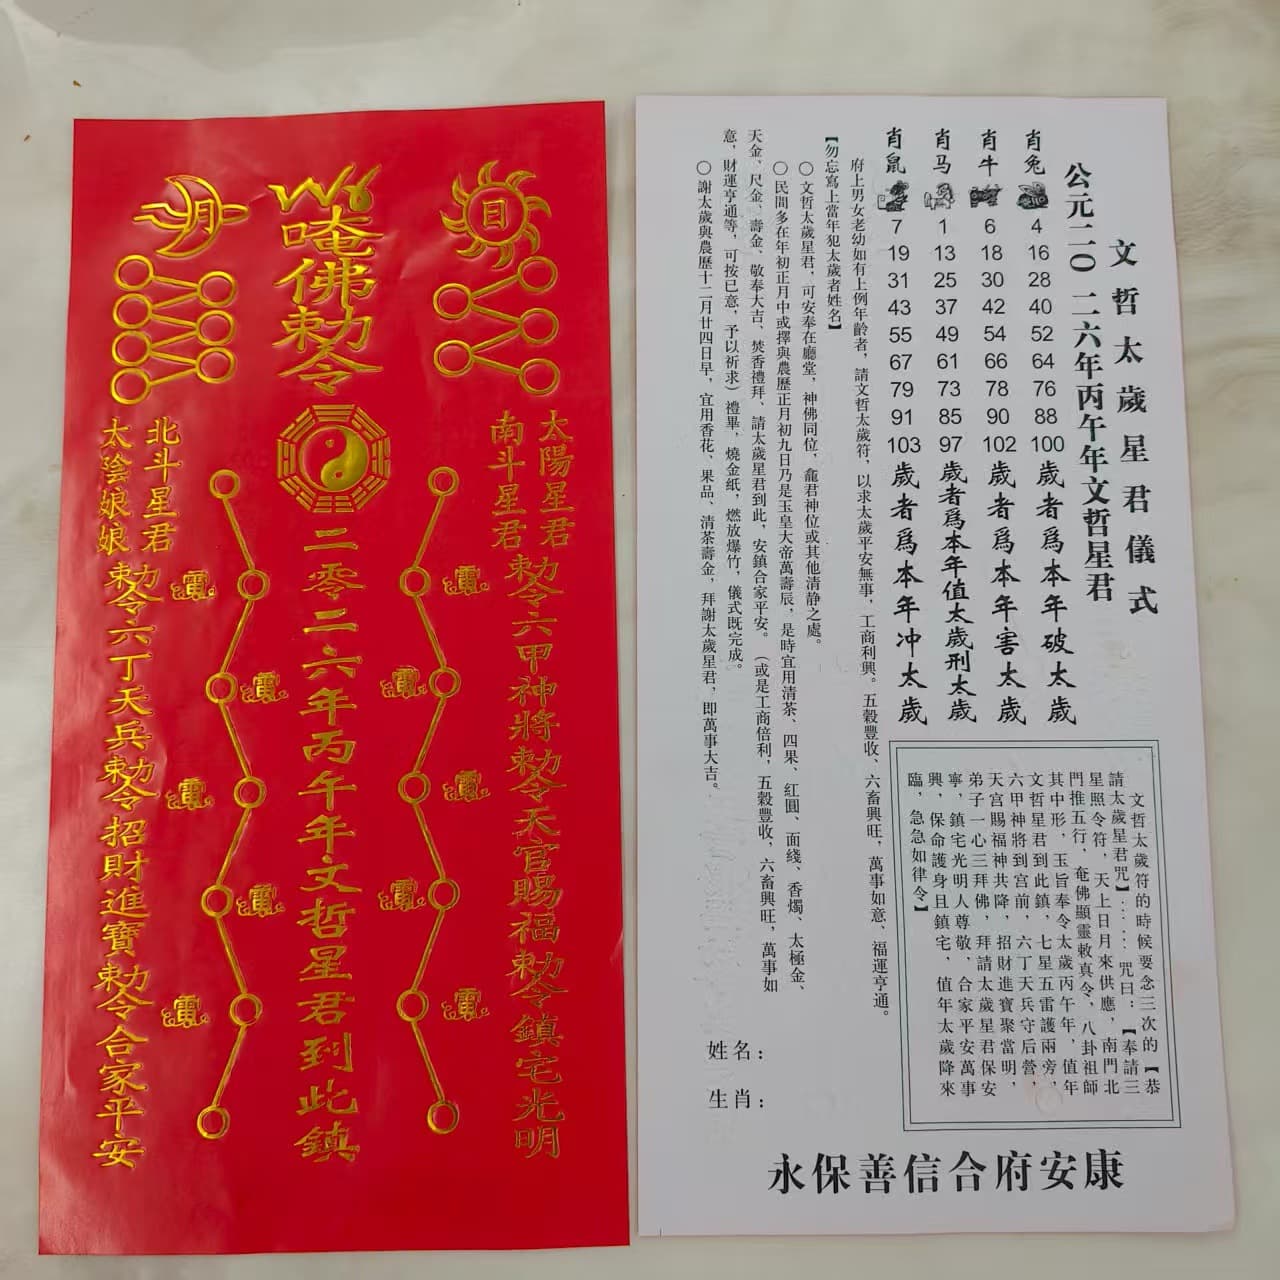 月
唵佛勅令
日
北斗星君
太陰娘娘
太陽星君
南斗星君
二零二六年丙午年文哲星君到此鎮
勅令六甲神將勅令天官賜福勅令鎮宅光明
勅令六丁天兵勅令招財進寶勅令合家平安
雷
雷
雷
雷
雷
雷
雷
雷
雷
雷
文哲太歲星君儀式
公元二〇二六年丙午年文哲星君
肖兔 4 16 28 40 52 64 76 88 100 歲者爲本年破太歲
肖牛 6 18 30 42 54 66 78 90 102 歲者爲本年害太歲
肖马 1 13 25 37 49 61 73 85 97 歲者爲本年值太歲刑太歲
肖鼠 7 19 31 43 55 67 79 91 103 歲者爲本年冲太歲
府上男女老幼如有上例年齡者，請文哲太歲符，以求太歲平安無事，工商利興。五穀豐收、六畜興旺，萬事如意、福運亨通。
【勿忘寫上當年犯太歲者姓名】
〇 文哲太歲星君，可安奉在廳堂，神佛同位，龕君神位或其他清静之處。
〇 民間多在年初正月中或擇與農歷正月初九日乃是玉皇大帝萬壽辰，是時宜用清茶、四果、紅圓、面綫、香燭、太極金、
天金、尺金、壽金、敬奉大吉、焚香禮拜、請太歲星君到此，安鎮合家平安。（或是工商倍利，五穀豐收，六畜興旺，萬事如
意，財運亨通等，可按已意，予以祈求）禮畢，燒金紙，燃放爆竹，儀式既完成。
〇 謝太歲與農歷十二月廿四日早，宜用香花、果品、清茶壽金，拜謝太歲星君，即萬事大吉。
文哲太歲符的時候要念三次的【恭
請太歲星君咒】．．．．．咒曰：【奉請三
星照令符，天上日月來供應，南門北
門推五行，奄佛顯靈敕真令，八卦祖師
其中形，玉旨奉令太歲丙午年，值年
文哲星君到此鎮，七星五雷護兩旁，
六甲神將到宫前，六丁天兵守后營，
天宫賜福神共降，招財進寶聚當明，
弟子一心三拜佛，拜請太歲星君保安
寧，鎮宅光明人尊敬、合家平安萬事
興，保命護身且鎮宅，值年太歲降來
臨，急急如律令】
姓名：
生肖：
永保善信合府安康